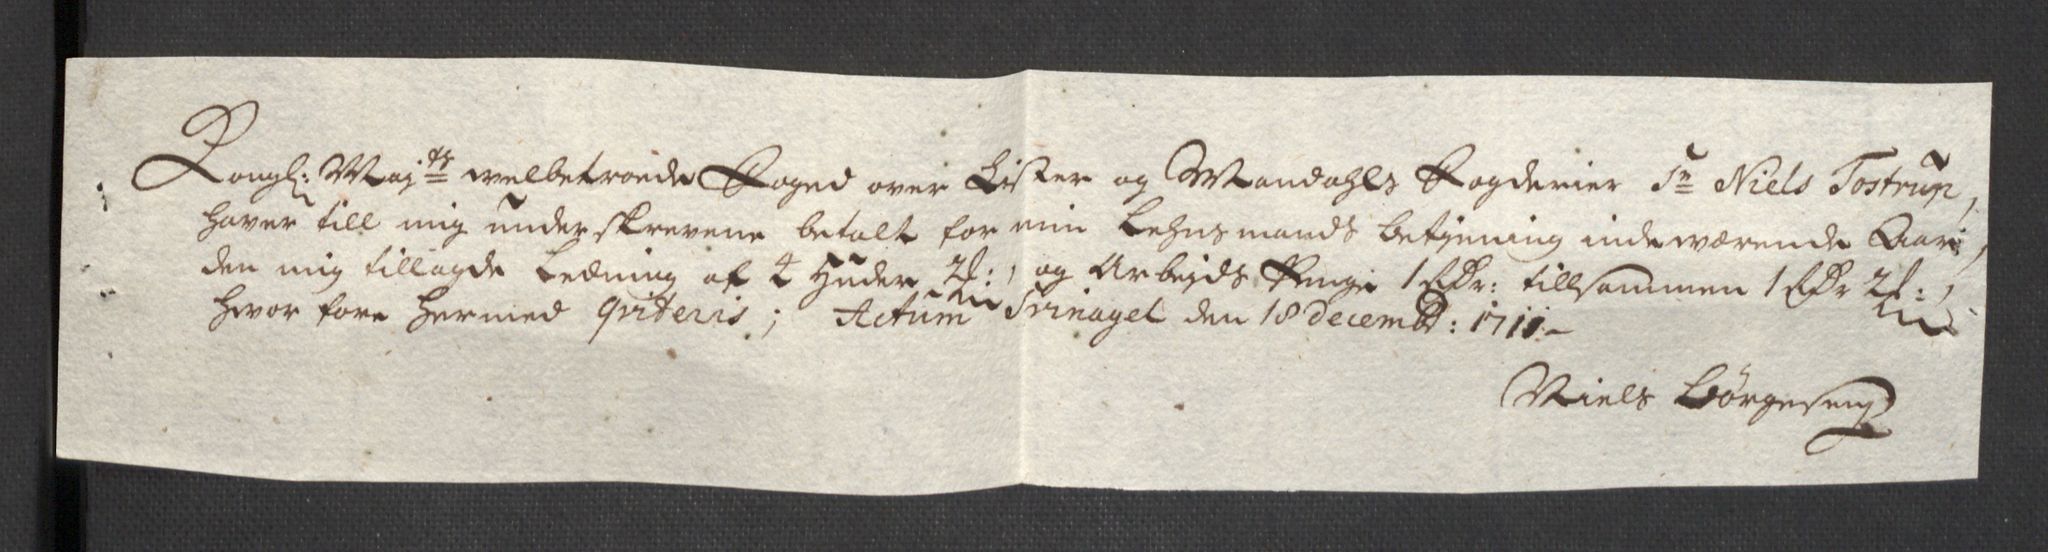 Kongl: Maj:ts welbetroede Foged over Lister og Mandahls Fogderier Sr Niels Tostrup,
haver till mig underskrevene betalt for min Lehnsmands betiening indeværende Aar,
den mig tillagde Ledning af 4 Huder 2 og Arbejds Penge 1 Rdr: tillsammen 1 Rdr 2
hvor fore hermed qviteris; Actum Svinagel den 18 Decembr: 1711
Niels Börgesen